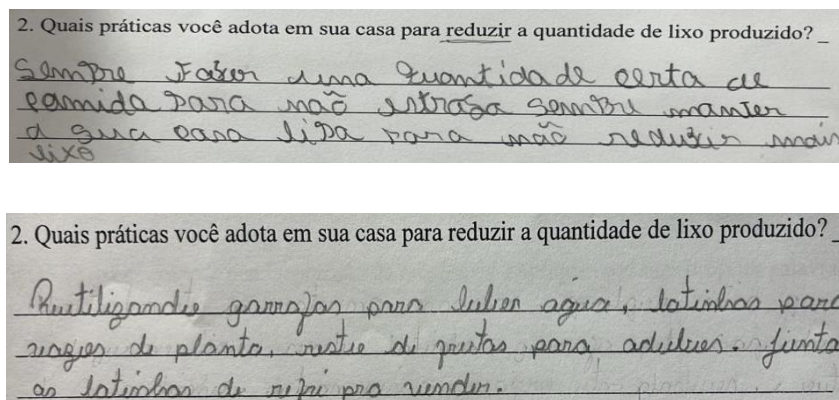 2. Quais práticas você adota em sua casa para reduzir a quantidade de lixo produzido?
Sempre Fazer uma quantidade certa de
comida para não estraga sempre manter
a sua casa lipa para não reduzir mais
lixo
2. Quais práticas você adota em sua casa para reduzir a quantidade de lixo produzido?
garrafas para beber agua, latinhas para
de planta, de frutas para adubes. junta
as latinhas de refri pra vender.